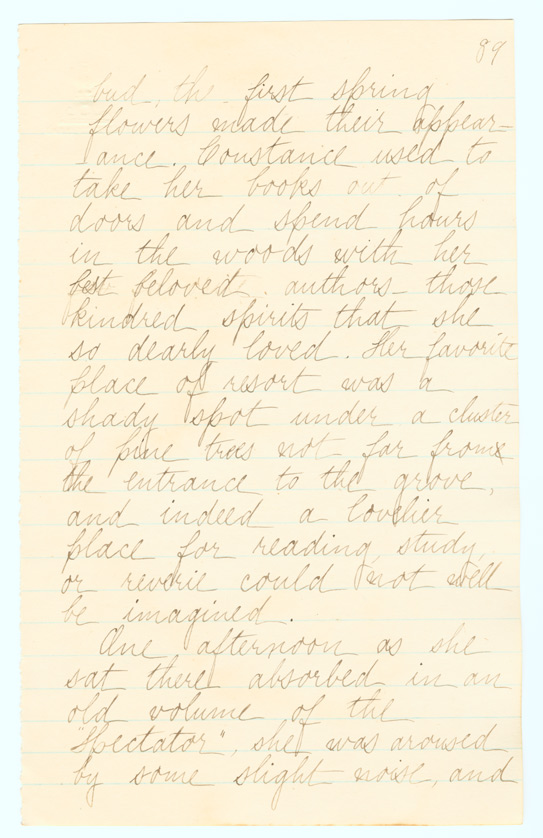 89
bud, the first spring
flowers made their appear-
ance. Constance used to
take her books out of
doors and spend hours
in the woods with her
best beloved authors- those
kindred spirits that she
so dearly loved. Her favorite
place of resort was a
shady spot under a cluster
of pine trees not far from
the entrance to the grove,
and indeed a lovelier
place for reading, study,
or reverie could not well
be imagined.
One afternoon as she
sat there absorbed in an
old volume of the
"Spectator", she was aroused
by some slight noise, and